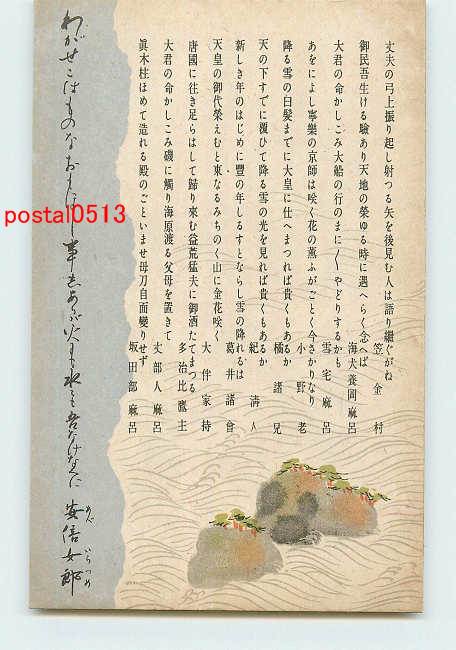 丈夫の弓上振り起し射つる矢を後見む人は語り繼ぐがね
笠金村
御民吾生ける驗あり天地の榮ゆる時に遇へらく念へば
海犬養岡麻呂
大君の命かしこみ大船の行のまに〳〵やどりするかも
雪宅麻呂
あをによし寧樂の京師は咲く花の薫ふがごとく今さかりなり
小野老
降る雪の白髮までに大皇に仕へまつれば貴くもあるか
橘諸兄
天の下すでに覆ひて降る雪の光を見れば貴くもあるか
紀淸人
新しき年のはじめに豐の年しるすとならし雪の降れるは
葛井諸會
天皇の御代榮えむと東なるみちのく山に金花咲く
大伴家持
唐國に往き足らはして歸り來む益荒猛夫に御酒たてまつる
多治比鷹主
大君の命かしこみ磯に觸り海原渡る父母を置きて
丈部人麻呂
眞木柱ほめて造れる殿のごといませ母刀自面變りせず
坂田部麻呂
わがせこはものなおもほし事しあらば火にも水にも吾なけなくに 安倍女郎
あべ いらつめ
postal0513